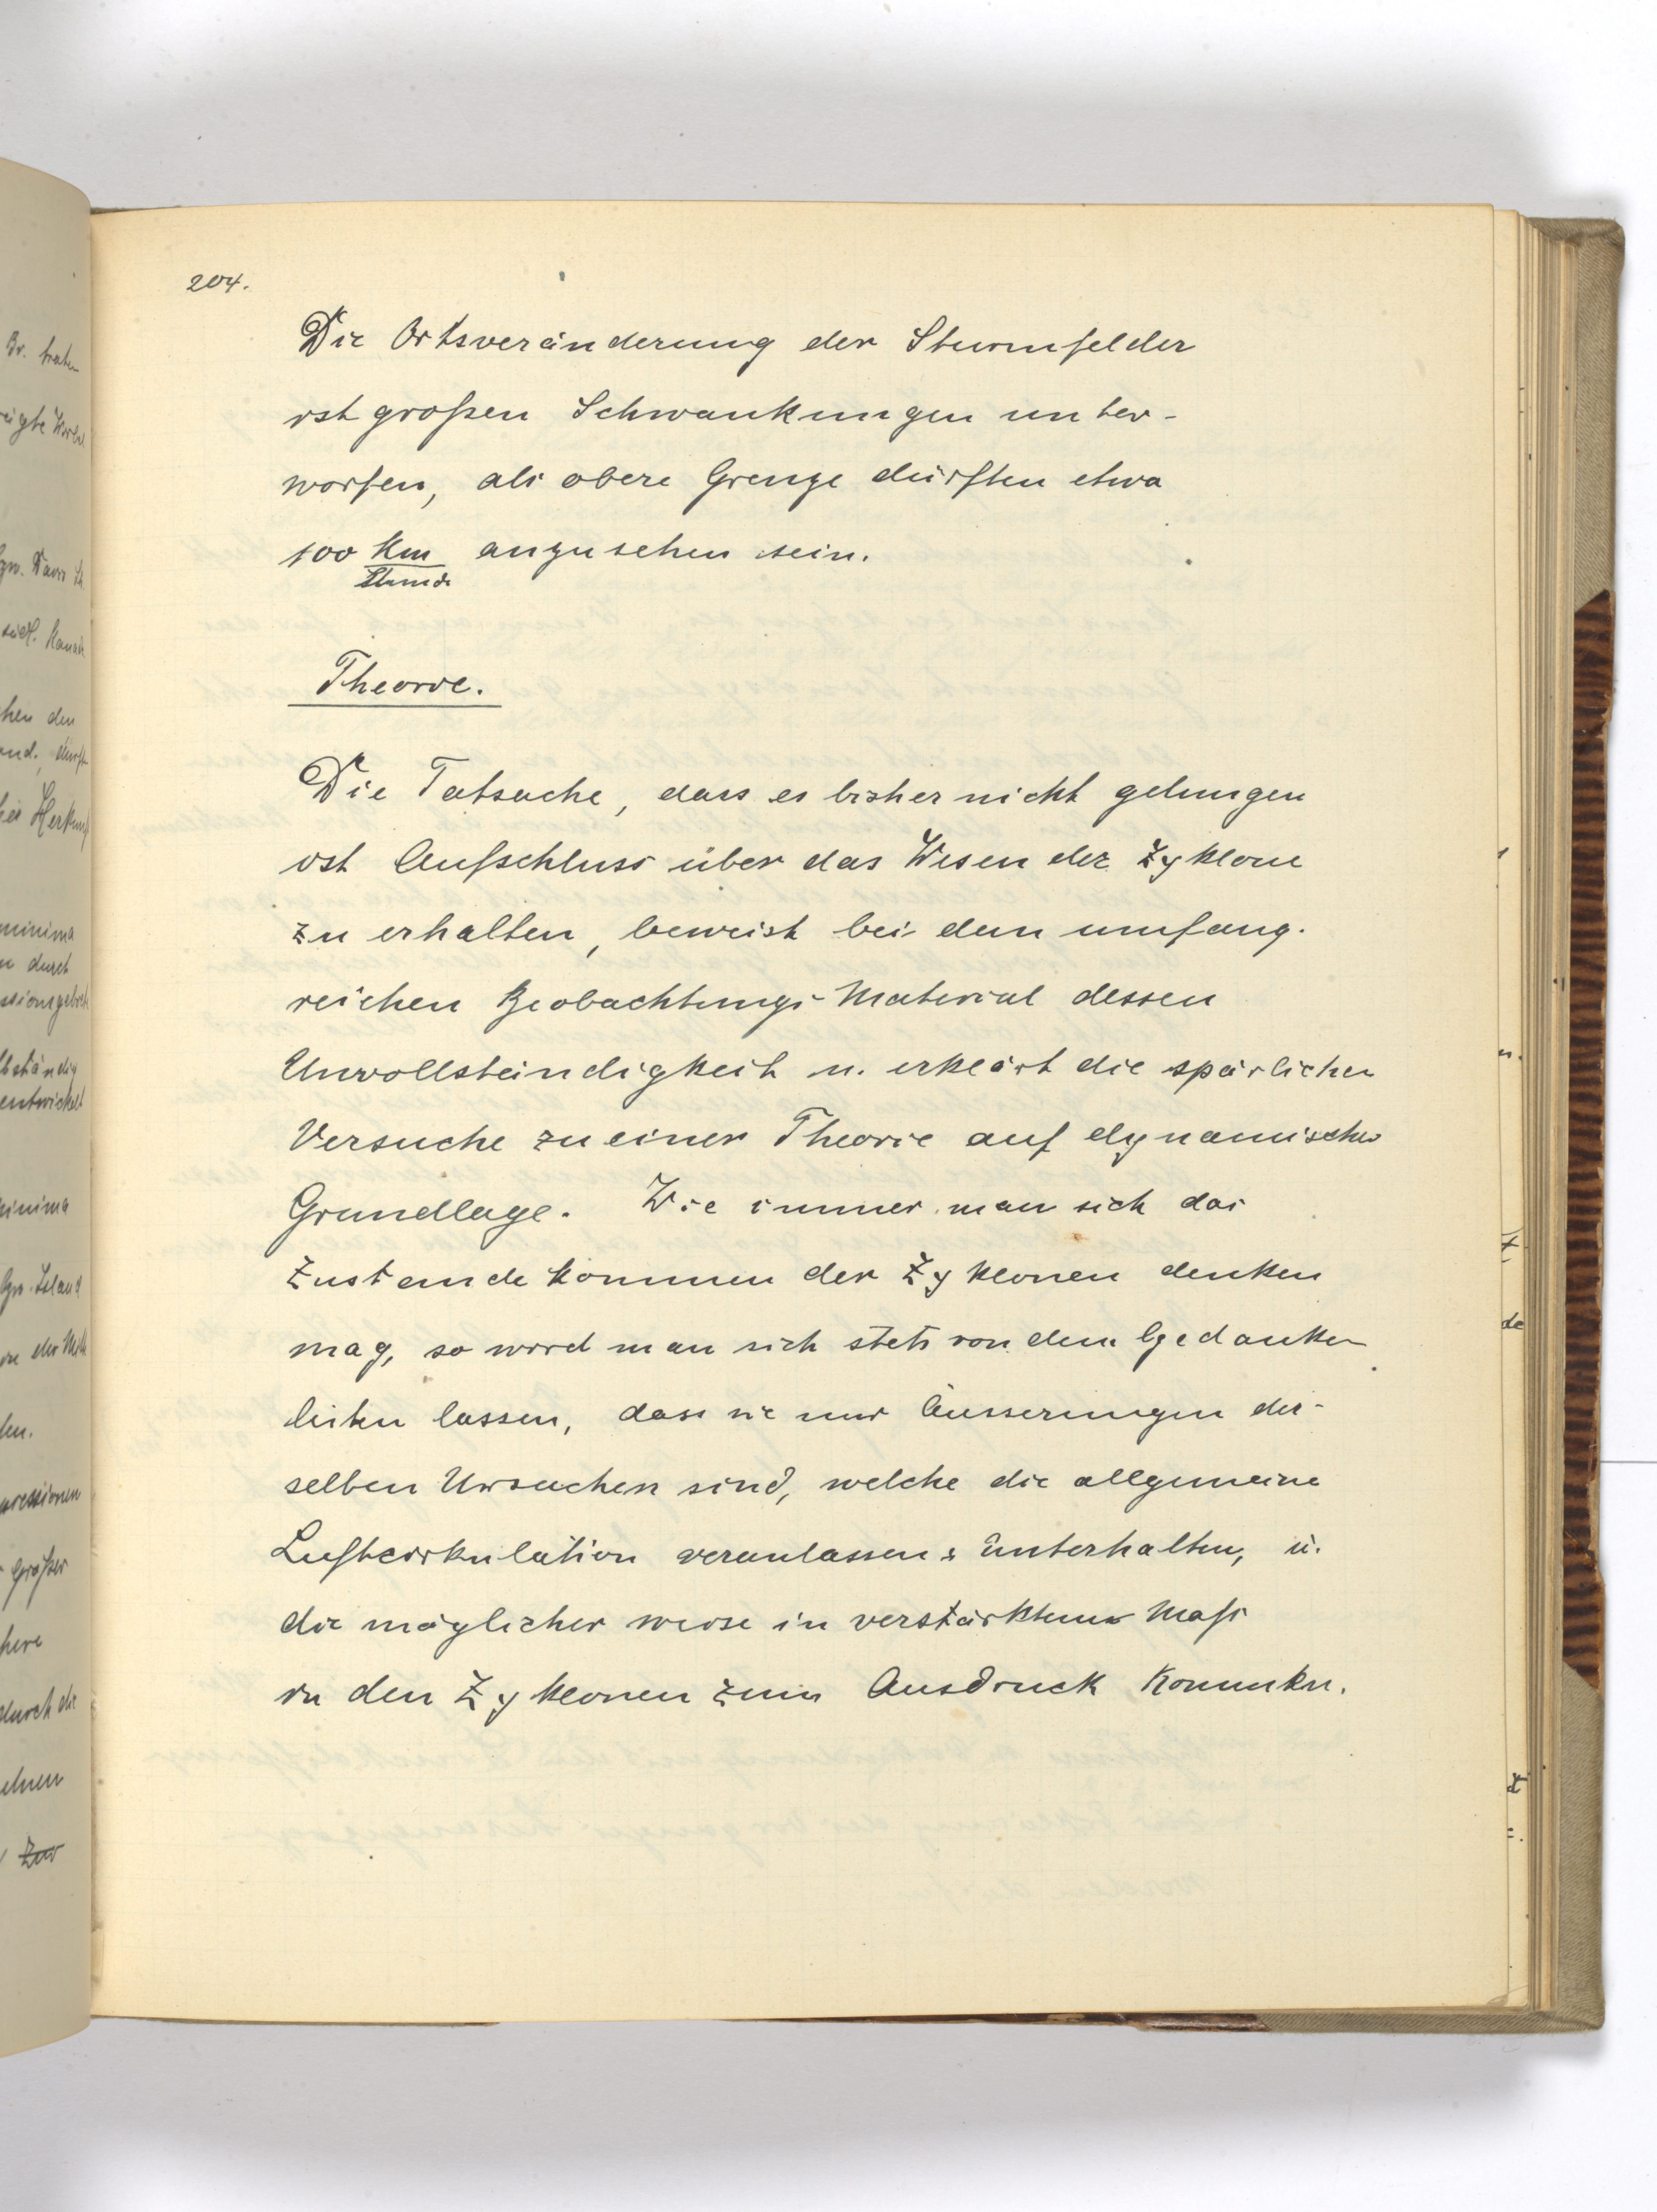 204.
Die Ortsveränderung der Sturmfelder
ist großen Schwankungen unter-
worfen, als obere Grenze dürften etwa
100 km anzusehen sein.
Stunde
Theorie.
Die Tatsache, dass es bisher nicht gelungen
ist Aufschluss über das Wesen der Zyklone
zu erhalten, beweist bei dem umfang-
reichen Beobachtungs-Material dessen
Unvollständigkeit u. erklärt die spärlichen
Versuche zu einer Theorie auf dynamischer
Grundlage. Wie immer man sich das
Zustandekommen der Zyklonen denken
mag, so wird man sich stets von dem Gedanken
leiten lassen, dass sie nur Äusserungen der-
selben Ursachen sind, welche die allgemeine
Luftcirkulation veranlassen & unterhalten, u.
die möglicher weise in verstärktem Maß
in den Zyklonen zum Ausdruck kommen.
Br. traten
südl. Kanada
hen den
Herkunft
minima
durch
ssionsgebiet
lbständig
entwickelt
inima
Island
in der Mitte
pressionen
größer
durch die